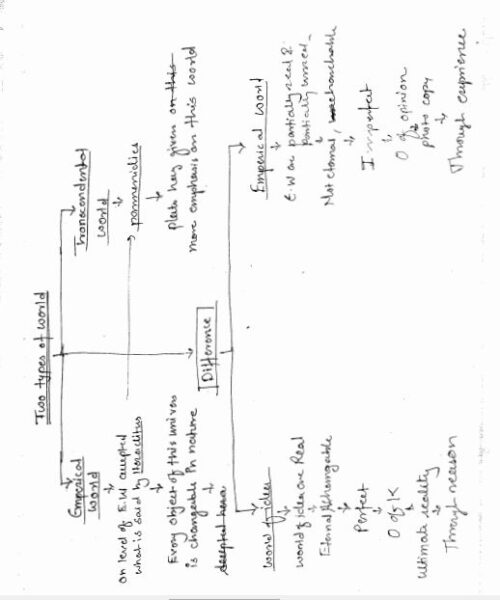 Two types of world
Emperical
world
on level of E.W accepted
what is said by Heraclitus
Every object of this univers
is changeable in nature
accepted
transcendental
world
parmenidies
plato hay given on this
more emphasis on this world
Difference
world of idea
world of idea are Real
Eternal &
Perfect
O of K
ultimate reality
Through reason
Emperical world
E.W are partially real &
partially unreal
Not eternal,
Imperfect
O of opinion
photo copy
Through